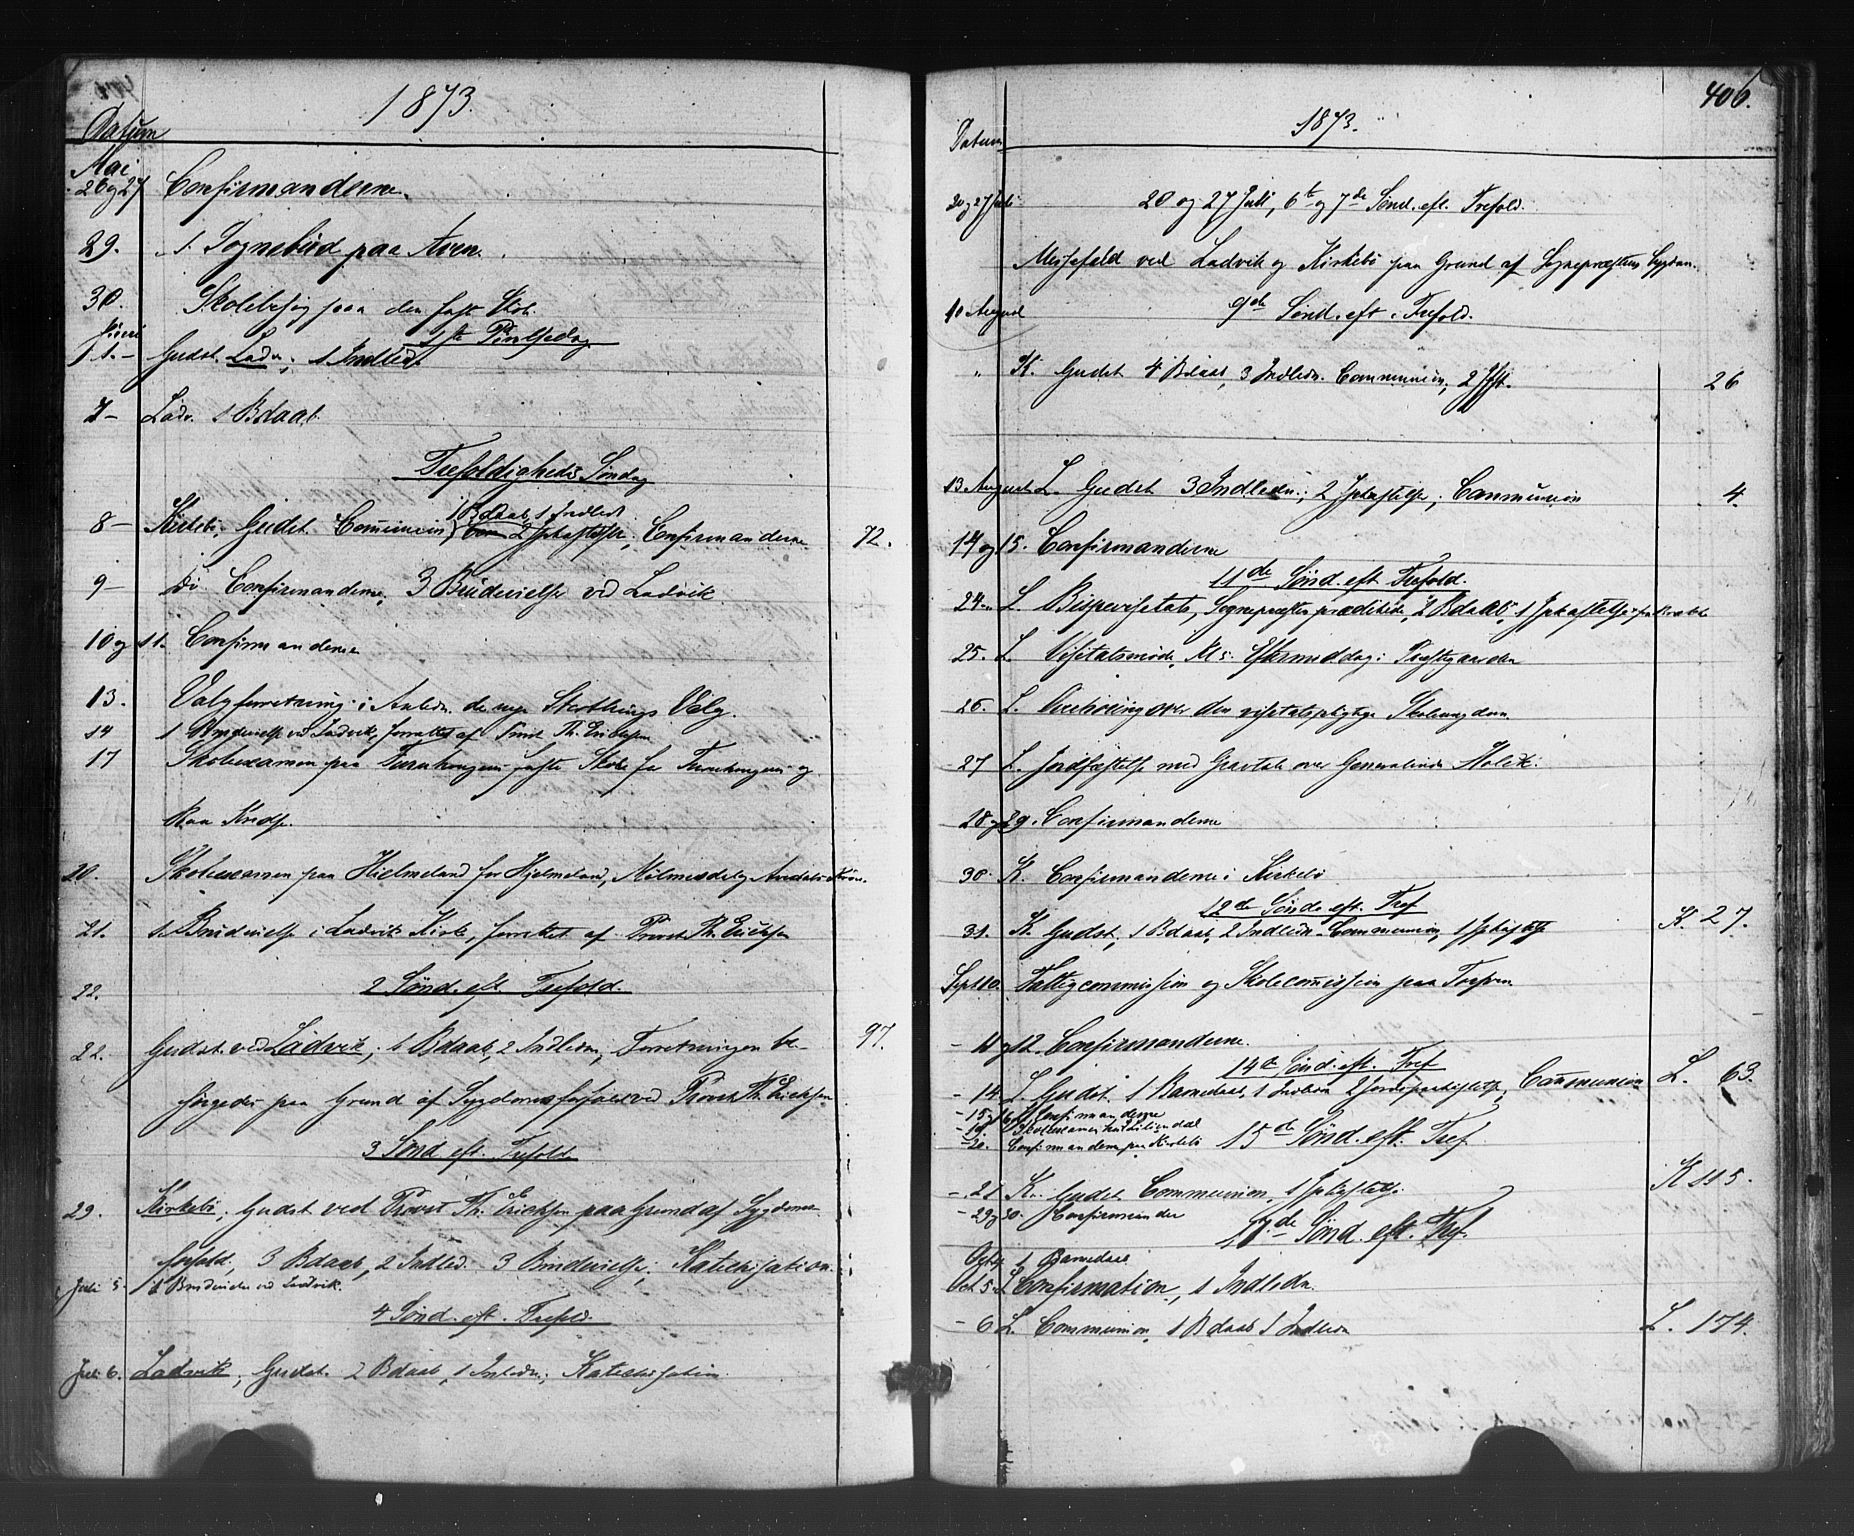 1873.
Datum
Mai
26 og 27 Confirmanderne.
29. 1 Sognebud paa Aven.
30. Skolebesøg paa den faste Skole
Juni 1ste Pintsedag
1. – Gudst. Ladv.; 1 Indledn.
7 – Ladv. 1 Bdaab.
Trefoldigheds Søndag
1 Bdaab 1 Indledn
8 – Kirkebø, Gudst. Communion, 2 Jpkastelse; Confirmanderne 72.
9 – Do Confirmanderne, 3 Brudevielse ved Ladvik
10 og 11. Confirmanderne
13. Valgforretning i Anledn. de nye Storthings Valg.
14 1 Brudevielse ved Ladvik, forrettet af Provst Th. Erichsen
17 Skoleexamen paa faste Skole for og
Kredse.
20. Skoleexamen paa Hjelmeland for Hjelmeland,
21. 1 Brudevielse i Ladvik Kirke, forrettet af Provst Th. Erichsen
22. 2 Sønd. eft. Trefold.
22. Gudst. ved Ladvik; 1 Bdaab, 2 Indledn; Forretningen be- 97.
sørgedes paa Grund af Sygdomsforfald ved Provst Th. Erichsen
3 Sønd eft. Trefold.
29. Kirkebø; Gudst ved Provst Th. Erichsen paa Grund af Sygdoms-
forfald, 3 Bdaab, 2 Indled. 3 Brudevielse; Katechisation.
Juli 5. 1 Brudevielse ved Ladvik.
4 Sønd. eft. Trefold.
Juli 6. Ladvik; Gudst. 2 Bdaab, 1 Indledn; Katechisation.
406.
1873.
Datum
20 og 27 Juli 20 og 27 Juli, 6te og 7de Sønd. eft. Trefold.
Messefald ved Ladvik og Kirkebø paa Grund af Sognepræstens Sygdom.
10 August 9de Sønd. eft. Trefold.
" K. Gudst 4 Bdaab, 3 Indledn. Communion, 2 Jpk. 26
13 August L. Gudst 3 Indledn.; 2 Jpkastelse; Communion 4.
14 og 15. Confirmanderne
11de Sønd. eft Trefold.
24. L Bispevisitats, Sognepræsten prædikede, 2 Bdaab, 1 Jpkastelse
25. L. Visitatsmøde, Kl 5 Eftermiddag i Præstgaarden
26. L. Overhøring over den visitatspligtige Skoleungdom
27 L. Jordfæstelse med Gravtale over Generalinde Holck.
28 og 29. Confirmanderne
30. K. Confirmanderne i Kirkebø
12de Sønd. eft. Tref
31. K Gudst, 1 Bdaab, 2 Indledn. Communion, 1 Jpkastelse K. 27.
Sept 10. Fattigcommission og Skolecommission paa Torsven
– 11 og 12. Confirmanderne.
14de Sønd. eft. Tref
– 14 L Gudst 1 Barnedaab, 1 Indledn 2 Jordpaakastelse, Communion L. 63.
– 15 og 16 Confirmanderne
– 19. Skoleexamen
– 20. Confirmanderne paa Kirkebø 15de Sønd. eft. Tref
– 21 K. Gudst Communion, 1 Jpkastelse. K 115.
– 29 og 30. Confirmander
17de Sønd. eft. Tref.
1 Barnedaab
Oct 5. L Confirmation, 1 Indledn.
– 6 L. Communion, 1 Bdaab 1 Indledn L. 174.